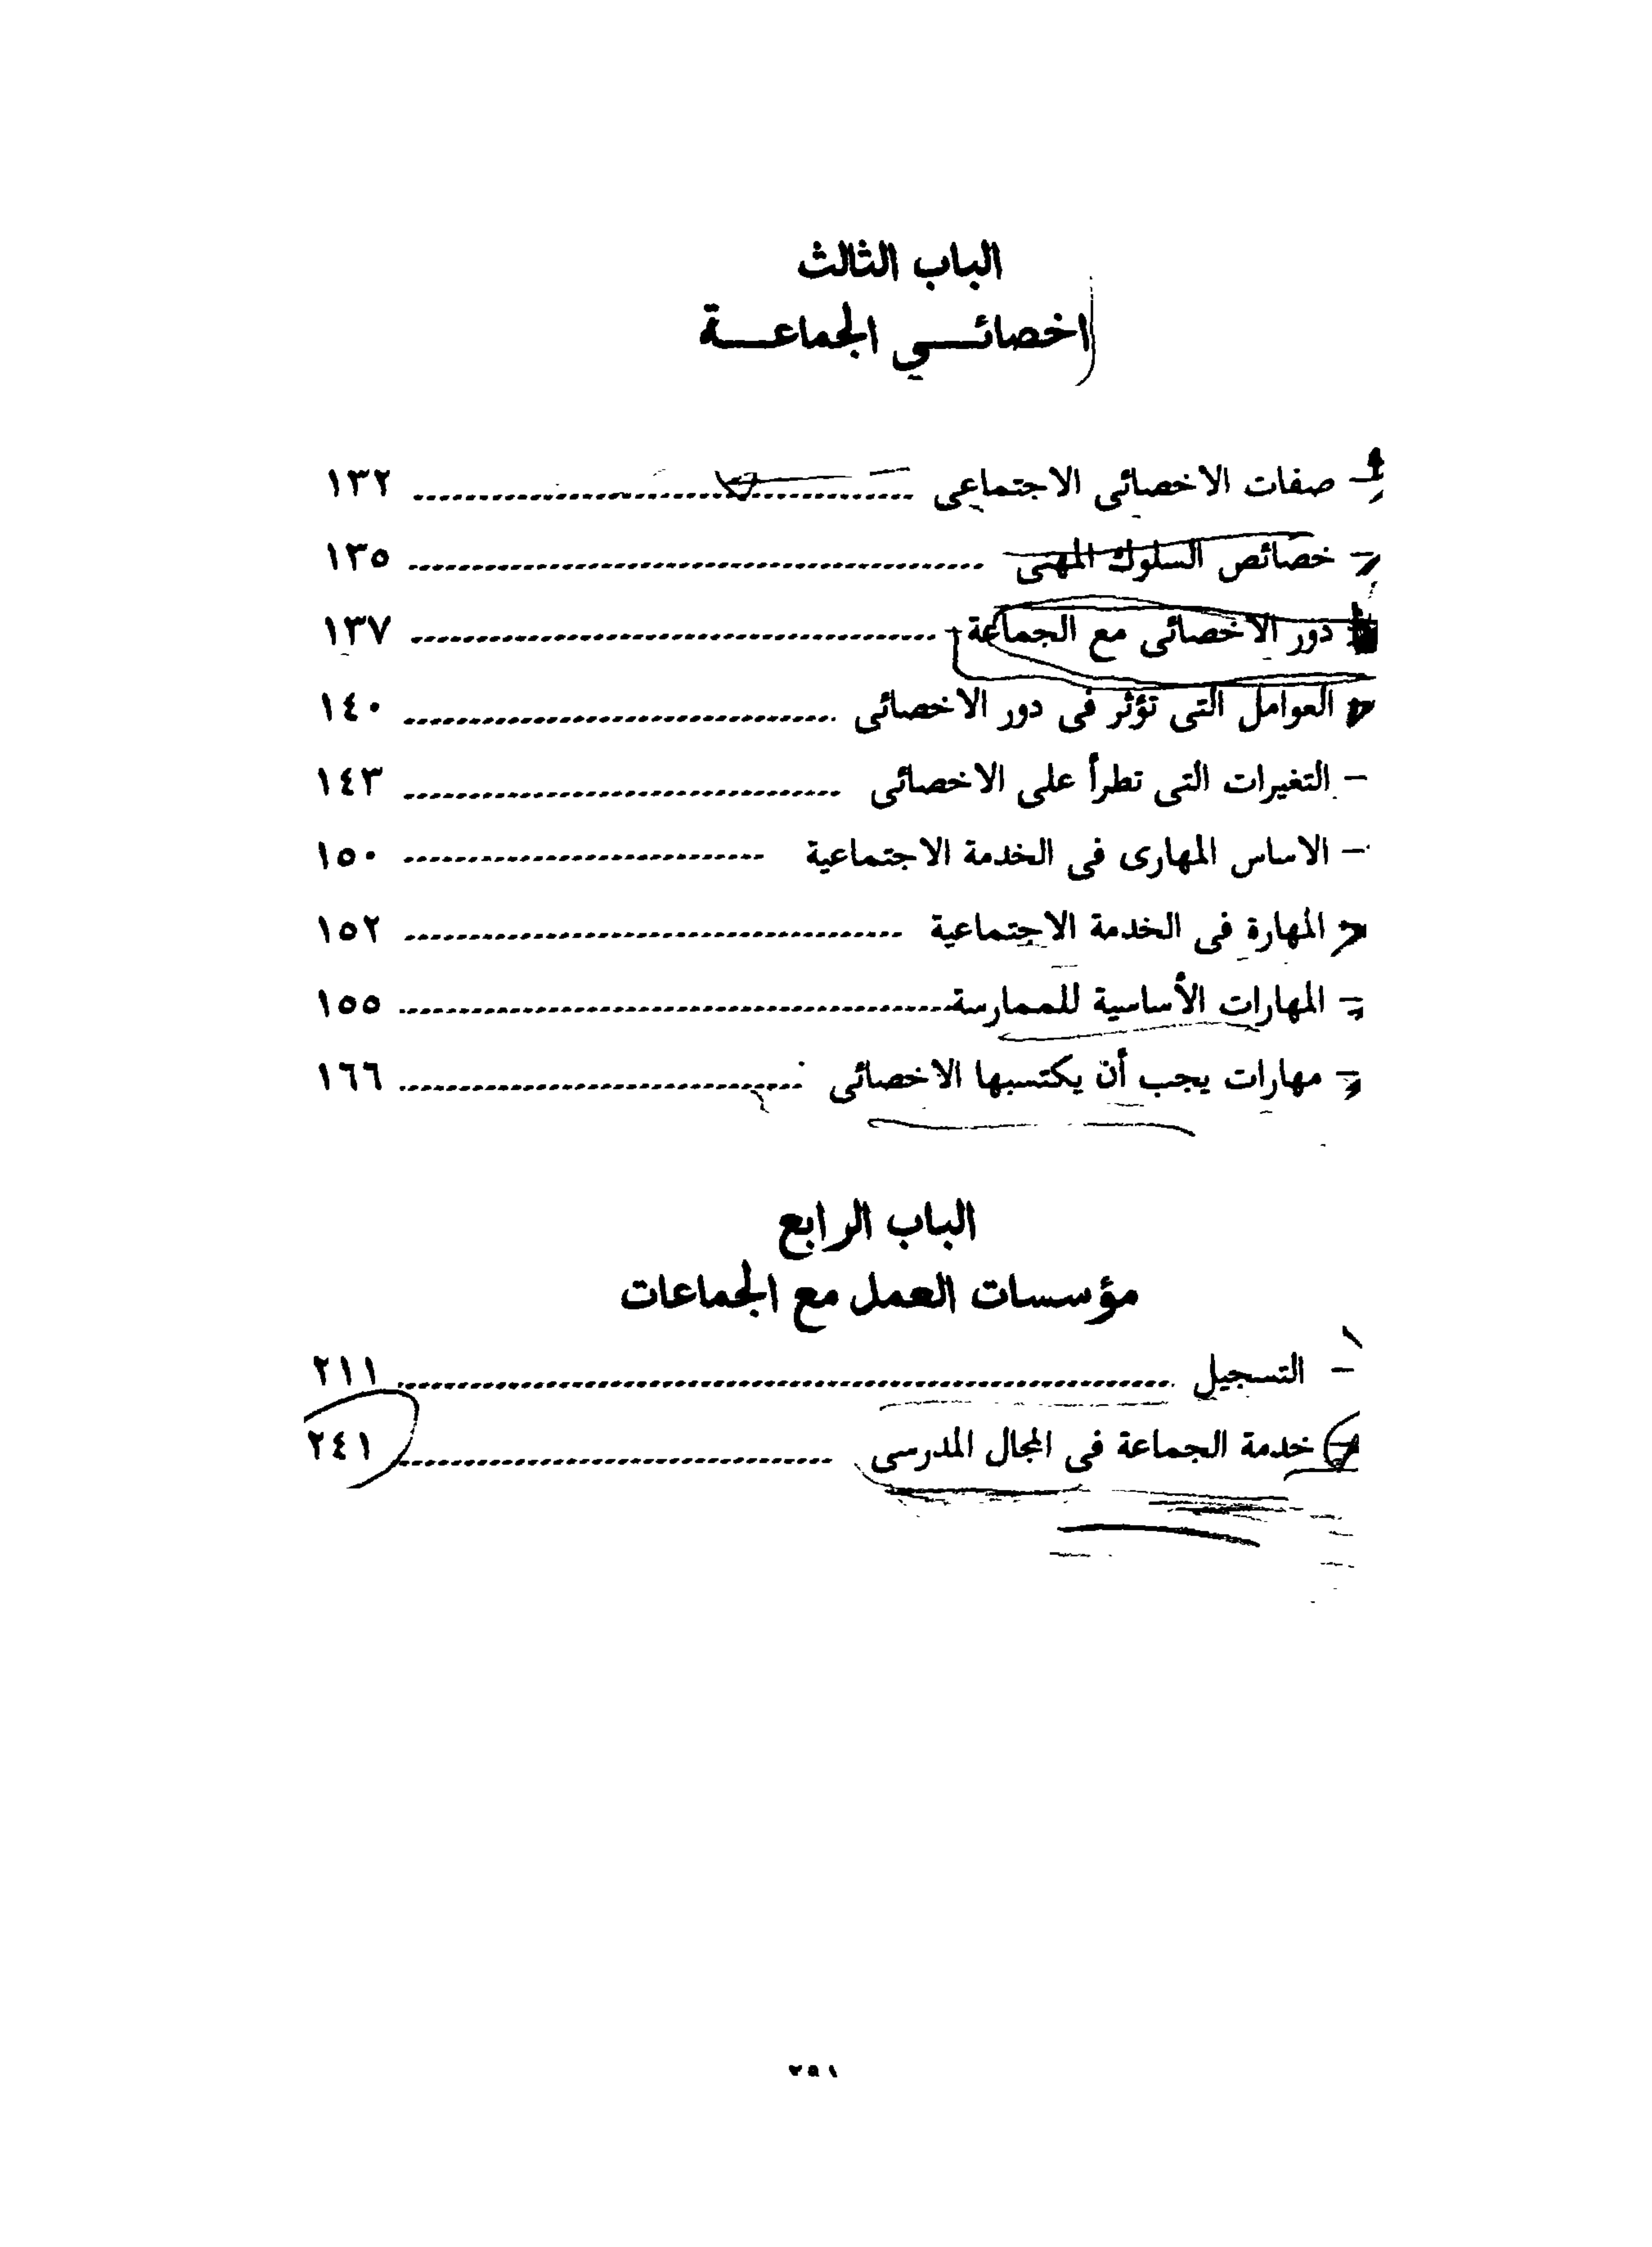 الباب الثالث
اخصائــــي الجماعــــة
- صفات الاخصائى الاجتماعى ........................................ ١٣٢
- خصائص السلوك المهنى ........................................ ١٣٥
- دور الاخصائى مع الجماعة ........................................ ١٣٧
- العوامل التى تؤثر فى دور الاخصائى ........................................ ١٤٠
- التغيرات التى تطرأ على الاخصائى ........................................ ١٤٣
- الاساس المهارى فى الخدمة الاجتماعية ........................................ ١٥٠
- المهارة فى الخدمة الاجتماعية ........................................ ١٥٢
- المهارات الأساسية للممارسة ........................................ ١٥٥
- مهارات يجب أن يكتسبها الاخصائى ........................................ ١٦٦
الباب الرابع
مؤسسات العمل مع الجماعات
- التسجيل ........................................ ٢١١
- خدمة الجماعة فى المجال المدرسى ........................................ ٢٤١
٢٥١